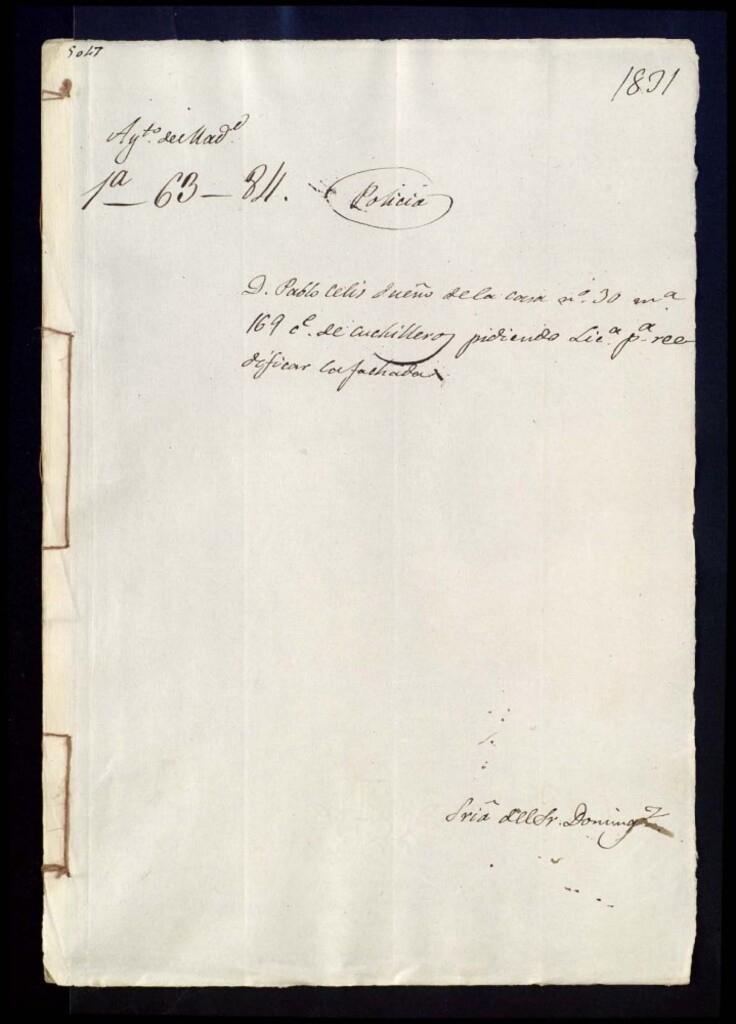 1831
Ayto. de Madd.
1a — 63 — 84.
Policia
D. Pablo Celis dueño de la casa no. 30 ma
169 ce. de cuchilleros pidiendo Lica. pa. ree
dificar la fachada
Sria del Sr. Domingz